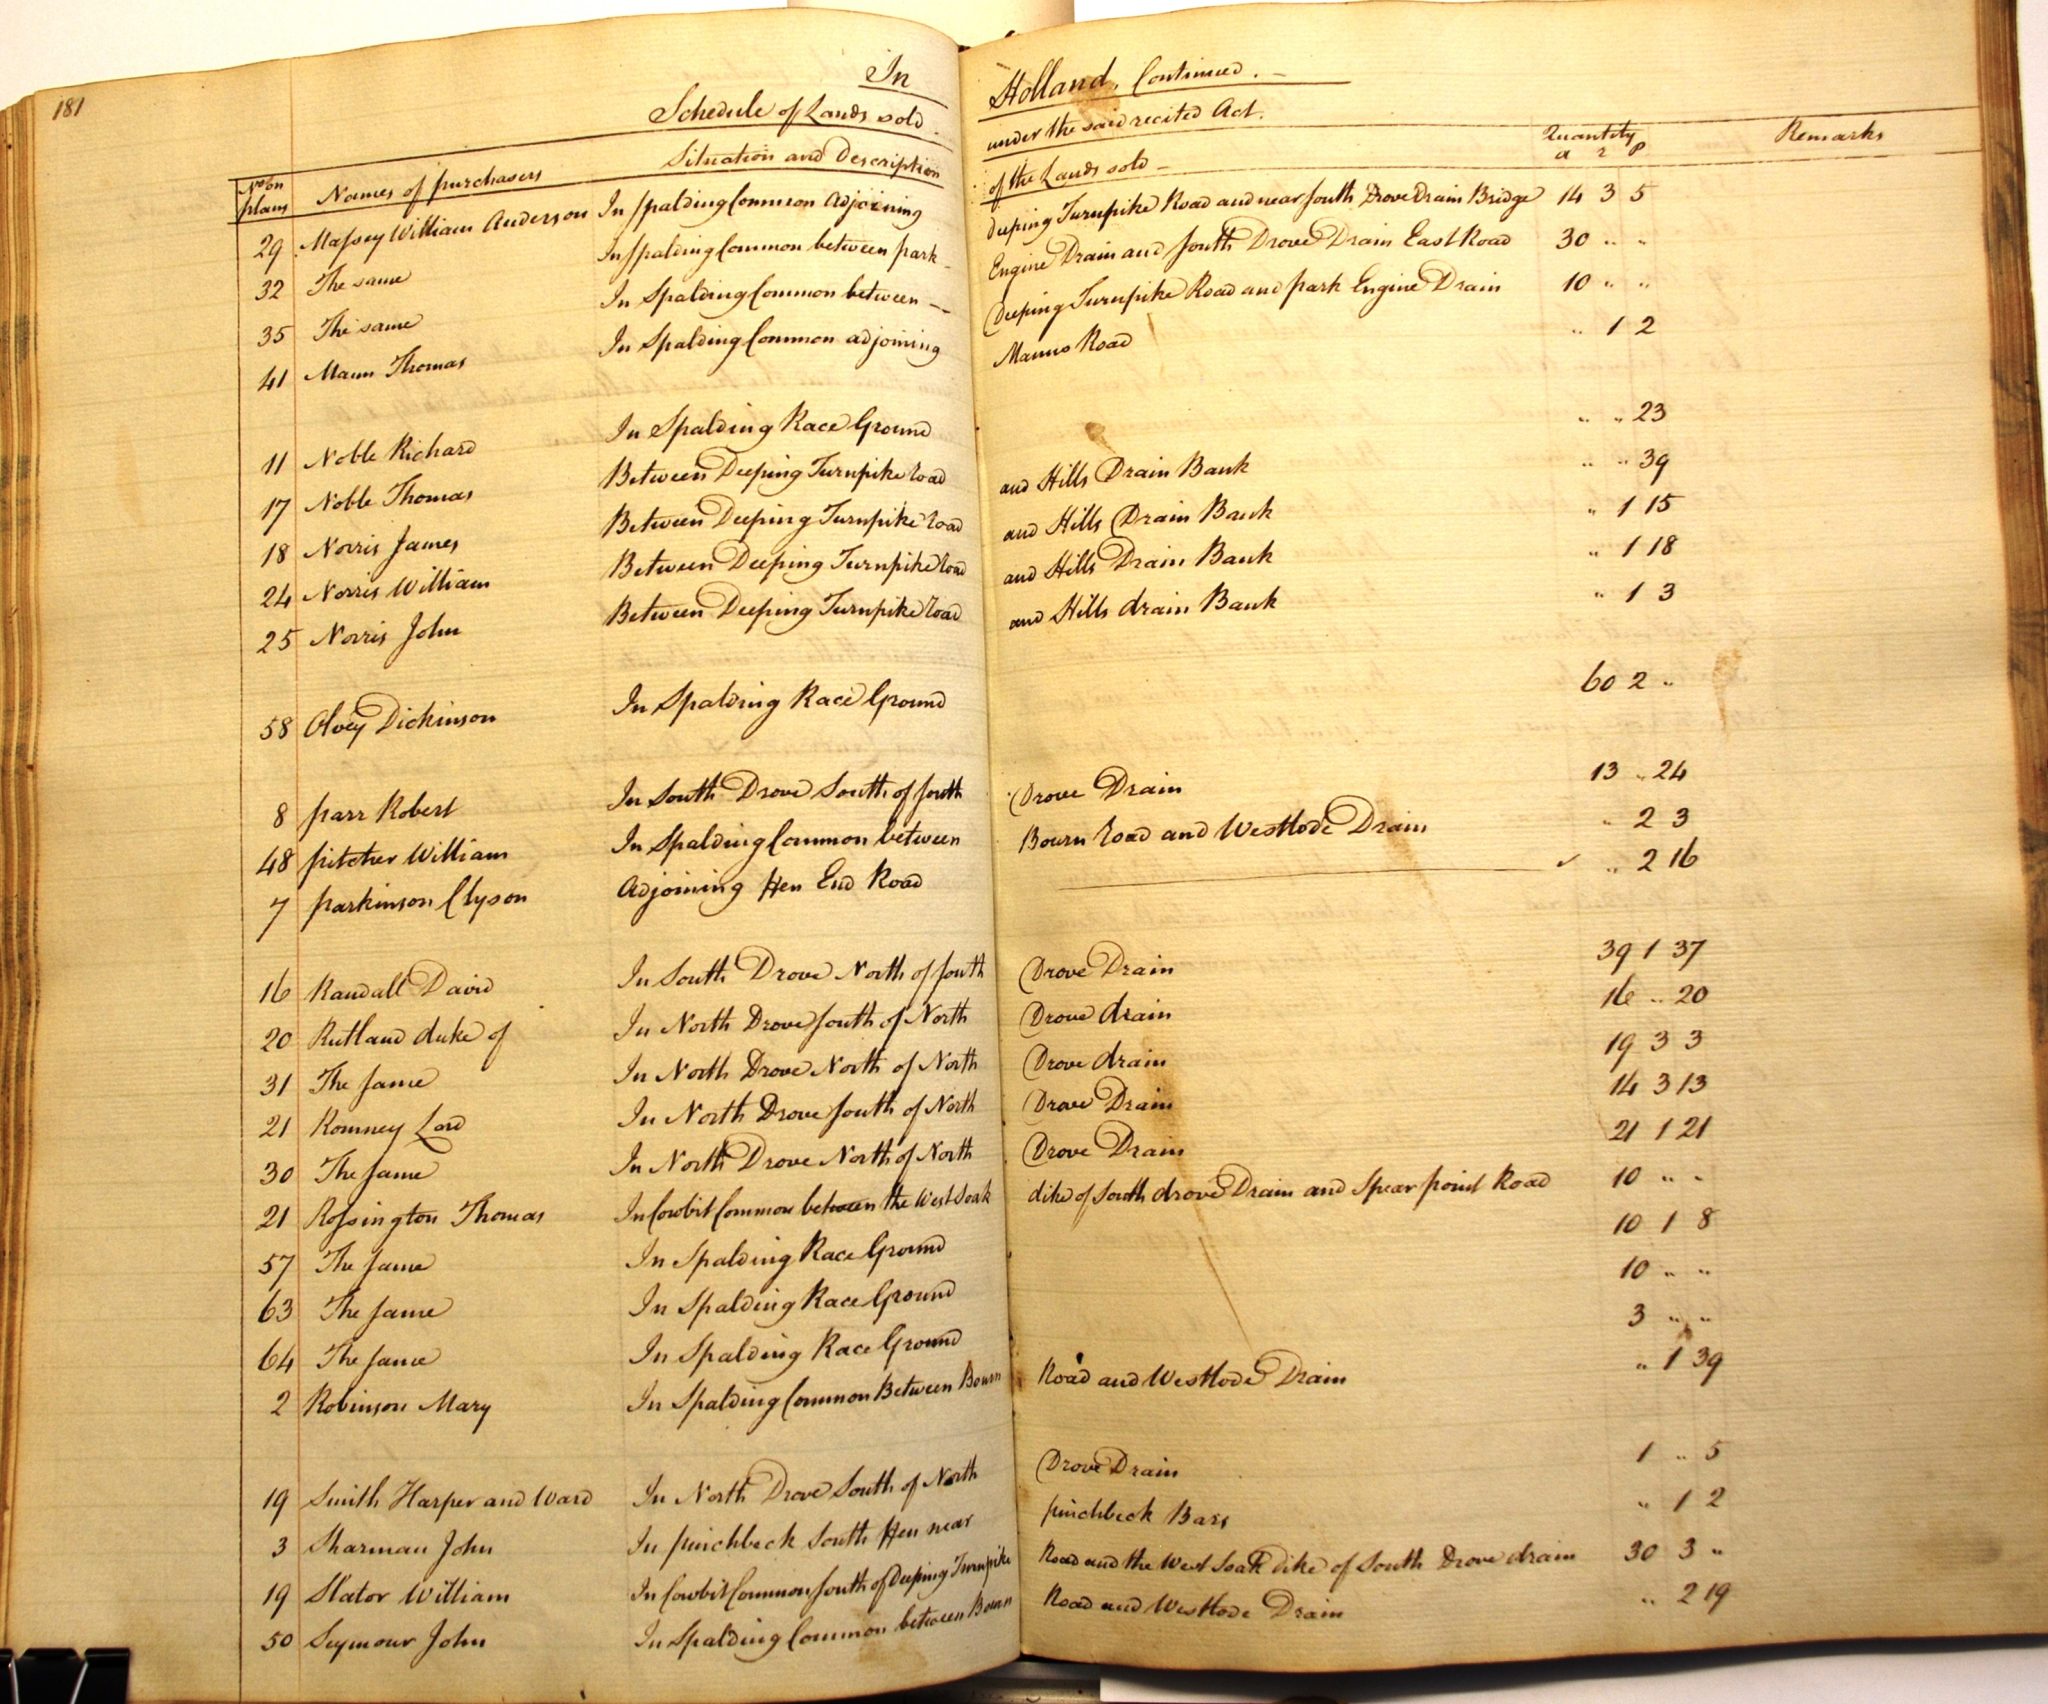 181
In Holland, Continued. —
Schedule of Lands sold under the said recited Act.
No. on plans Names of purchasers Situation and Description of the Lands sold — Quantity a r p Remarks
29 Massey William Anderson In Spalding Common Adjoining Deeping Turnpike Road and near South Drove Drain Bridge 14 3 5
32 The same In Spalding Common between park Engine Drain and South Drove Drain East Road 30 " "
35 The same In Spalding Common between — Deeping Turnpike Road and park Engine Drain 10 " "
41 Mann Thomas In Spalding Common adjoining Manns Road " 1 2
11 Noble Richard In Spalding Race Ground " " 23
17 Noble Thomas Between Deeping Turnpike road and Hills Drain Bank " " 39
18 Norris James Between Deeping Turnpike road and Hills Drain Bank " 1 15
24 Norris William Between Deeping Turnpike road and Hills Drain Bank " 1 18
25 Norris John Between Deeping Turnpike road and Hills drain Bank " 1 3
58 Olvey Dickinson In Spalding Race Ground 60 2 "
8 parr Robert In South Drove South of South Drove Drain 13 " 24
48 pitcher William In Spalding Common between Bourn road and Westlode Drain " 2 3
7 parkinson Clyson Adjoining Hen End Road " 2 16
16 Randall David In South Drove North of South Drove Drain 39 1 37
20 Rutland duke of In North Drove South of North Drove drain 16 " 20
31 The Same In North Drove North of North Drove drain 19 3 3
21 Romney Lord In North Drove South of North Drove Drain 14 3 13
30 The Same In North Drove North of North Drove Drain 21 1 21
21 Rossington Thomas In Cowbit Common between the West Soak dike of South drove Drain and Spear point Road 10 " "
57 The Same In Spalding Race Ground 10 1 8
63 The Same In Spalding Race Ground 10 " "
64 The Same In Spalding Race Ground 3 " "
2 Robinson Mary In Spalding Common Between Bourn Road and Westlode Drain " 1 39
19 Smith Harper and Ward In North Drove South of North Drove Drain 1 " 5
3 Sharman John In pinchbeck South Hen near pinchbeck Bars " 1 2
19 Slator William In Cowbit Common South of Deeping Turnpike Road and the West Soak dike of South Drove drain 30 3 "
50 Seymour John In Spalding Common between Bourn Road and Westlode Drain " 2 19